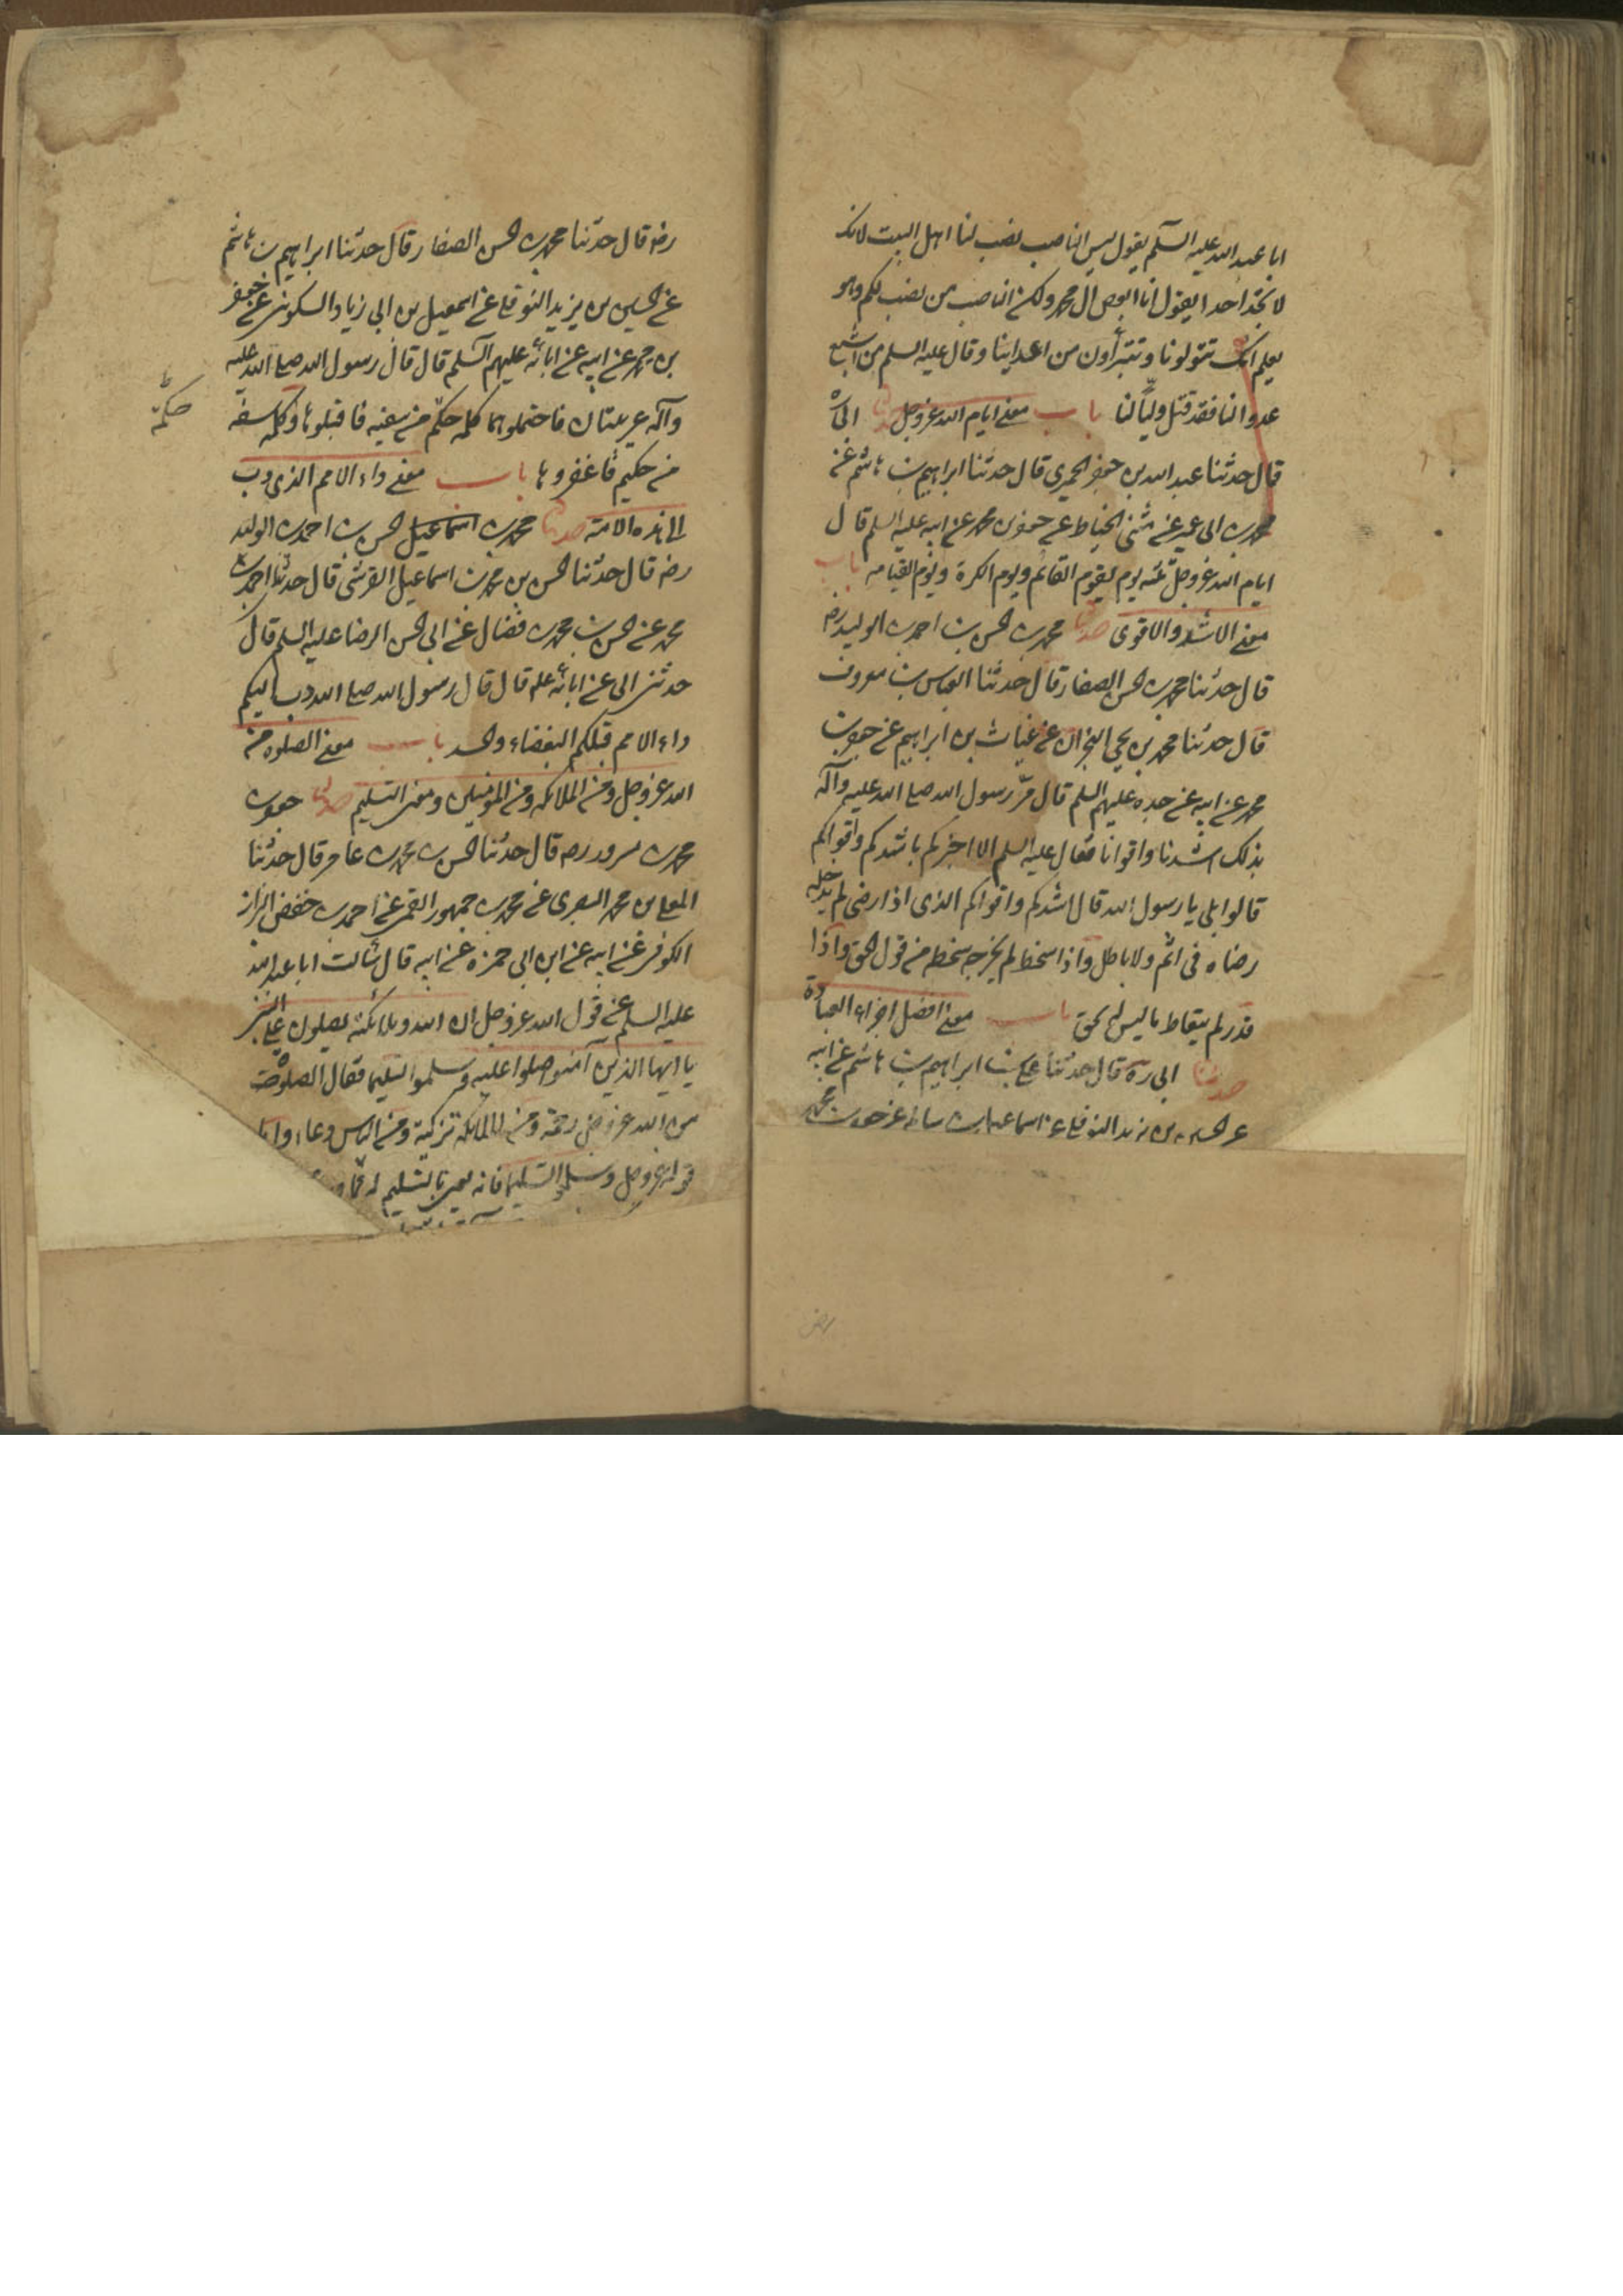 ابا عبد الله عليه السلم يقول ليس الناصب نصب لنا اهل البيت لانك
لا تجد احدا يقول انا ابغض ال محمد ولكن الناصب من نصب لكم وهو
يعلم انكم تتولونا وتتبرأون من اعداينا وقال عليه السلم من اشبع
عدوا لنا فقد قتل وليا لنا باب معنى ايام الله عز وجل حدثنا ابي ره
قال حدثنا عبد الله بن جعفر الحميري قال حدثنا ابراهيم بن هاشم عن
محمد بن ابي عمير عن مثنى الحناط عن جعفر بن محمد عن ابيه عليه السلم قال
ايام الله عز وجل ثلثه يوم يقوم القائم ويوم الكرة ويوم القيامه باب
معنى الاشد والاقوى حدثنا محمد بن الحسن بن احمد بن الوليد رضه
قال حدثنا محمد بن الحسن الصفار قال حدثنا العباس بن معروف
قال حدثنا محمد بن يحيى الخزاز عن غياث بن ابراهيم عن جعفر بن
محمد عن ابيه عن جده عليهم السلم قال مر رسول الله صلى الله عليه وآله
بذلك اشدنا واقوانا فقال عليه السلم الا اخبركم باشدكم واقواكم
قالوا بلى يا رسول الله قال اشدكم واقواكم الذى اذا رضى لم يدخله
رضاه فى اثم ولا باطل واذا سخط لم يخرجه سخطه من قول الحق واذا
قدر لم يتعاط ما ليس له بحق باب معنى افضل اجزاء العبادة
حدثنا ابى ره قال حدثنا على بن ابراهيم بن هاشم عن ابيه
عن الحسين بن يزيد النوفلى عن اسماعيل بن عن جعفر بن محمد
رضه قال حدثنا محمد بن الحسن الصفار قال حدثنا ابراهيم بن هاشم
عن الحسين بن يزيد النوفلى عن اسمعيل بن ابى زياد السكونى عن جعفر
بن محمد عن ابيه عن ابائه عليهم السلم قال قال رسول الله صلى الله عليه
وآله غريبتان فاحتملوهما كلمه حكم من سفيه فاقبلوها وكلمه سفه
حكمة
من حكيم فاغفروها باب معنى داء الامم الذى دب
الى هذه الامة حدثنا محمد بن اسماعيل الحسن بن احمد بن الوليد
رضه قال حدثنا الحسن بن محمد بن اسماعيل القرشى قال حدثنا احمد بن
محمد عن الحسن بن محمد بن فضال عن ابى الحسن الرضا عليه السلم قال
حدثنى ابى عن ابائه علم قال قال رسول الله صلى الله دب اليكم
داء الامم قبلكم البغضاء والحسد باب معنى الصلوه من
الله عز وجل ومن الملائكه ومن المؤمنين ومعنى التسليم حدثنا جعفر بن
محمد بن مسرور ره قال حدثنا الحسن بن محمد بن عامر قال حدثنا
المعلى بن محمد البصرى عن محمد بن جمهور القمى عن احمد بن حفص البزاز
الكوفى عن ابيه عن ابن ابى حمزه عن ابيه قال سألت ابا عبد الله
عليه السلم عن قول الله عز وجل ان الله وملائكته يصلون على النبي
يا ايها الذين آمنوا صلوا عليه وسلموا تسليما فقال الصلوة
من الله عز وجل رحمة ومن الملائكة تزكية ومن الناس دعاء واما
قوله عز وجل وسلموا تسليما فانه يعنى بالتسليم له فيما
رض